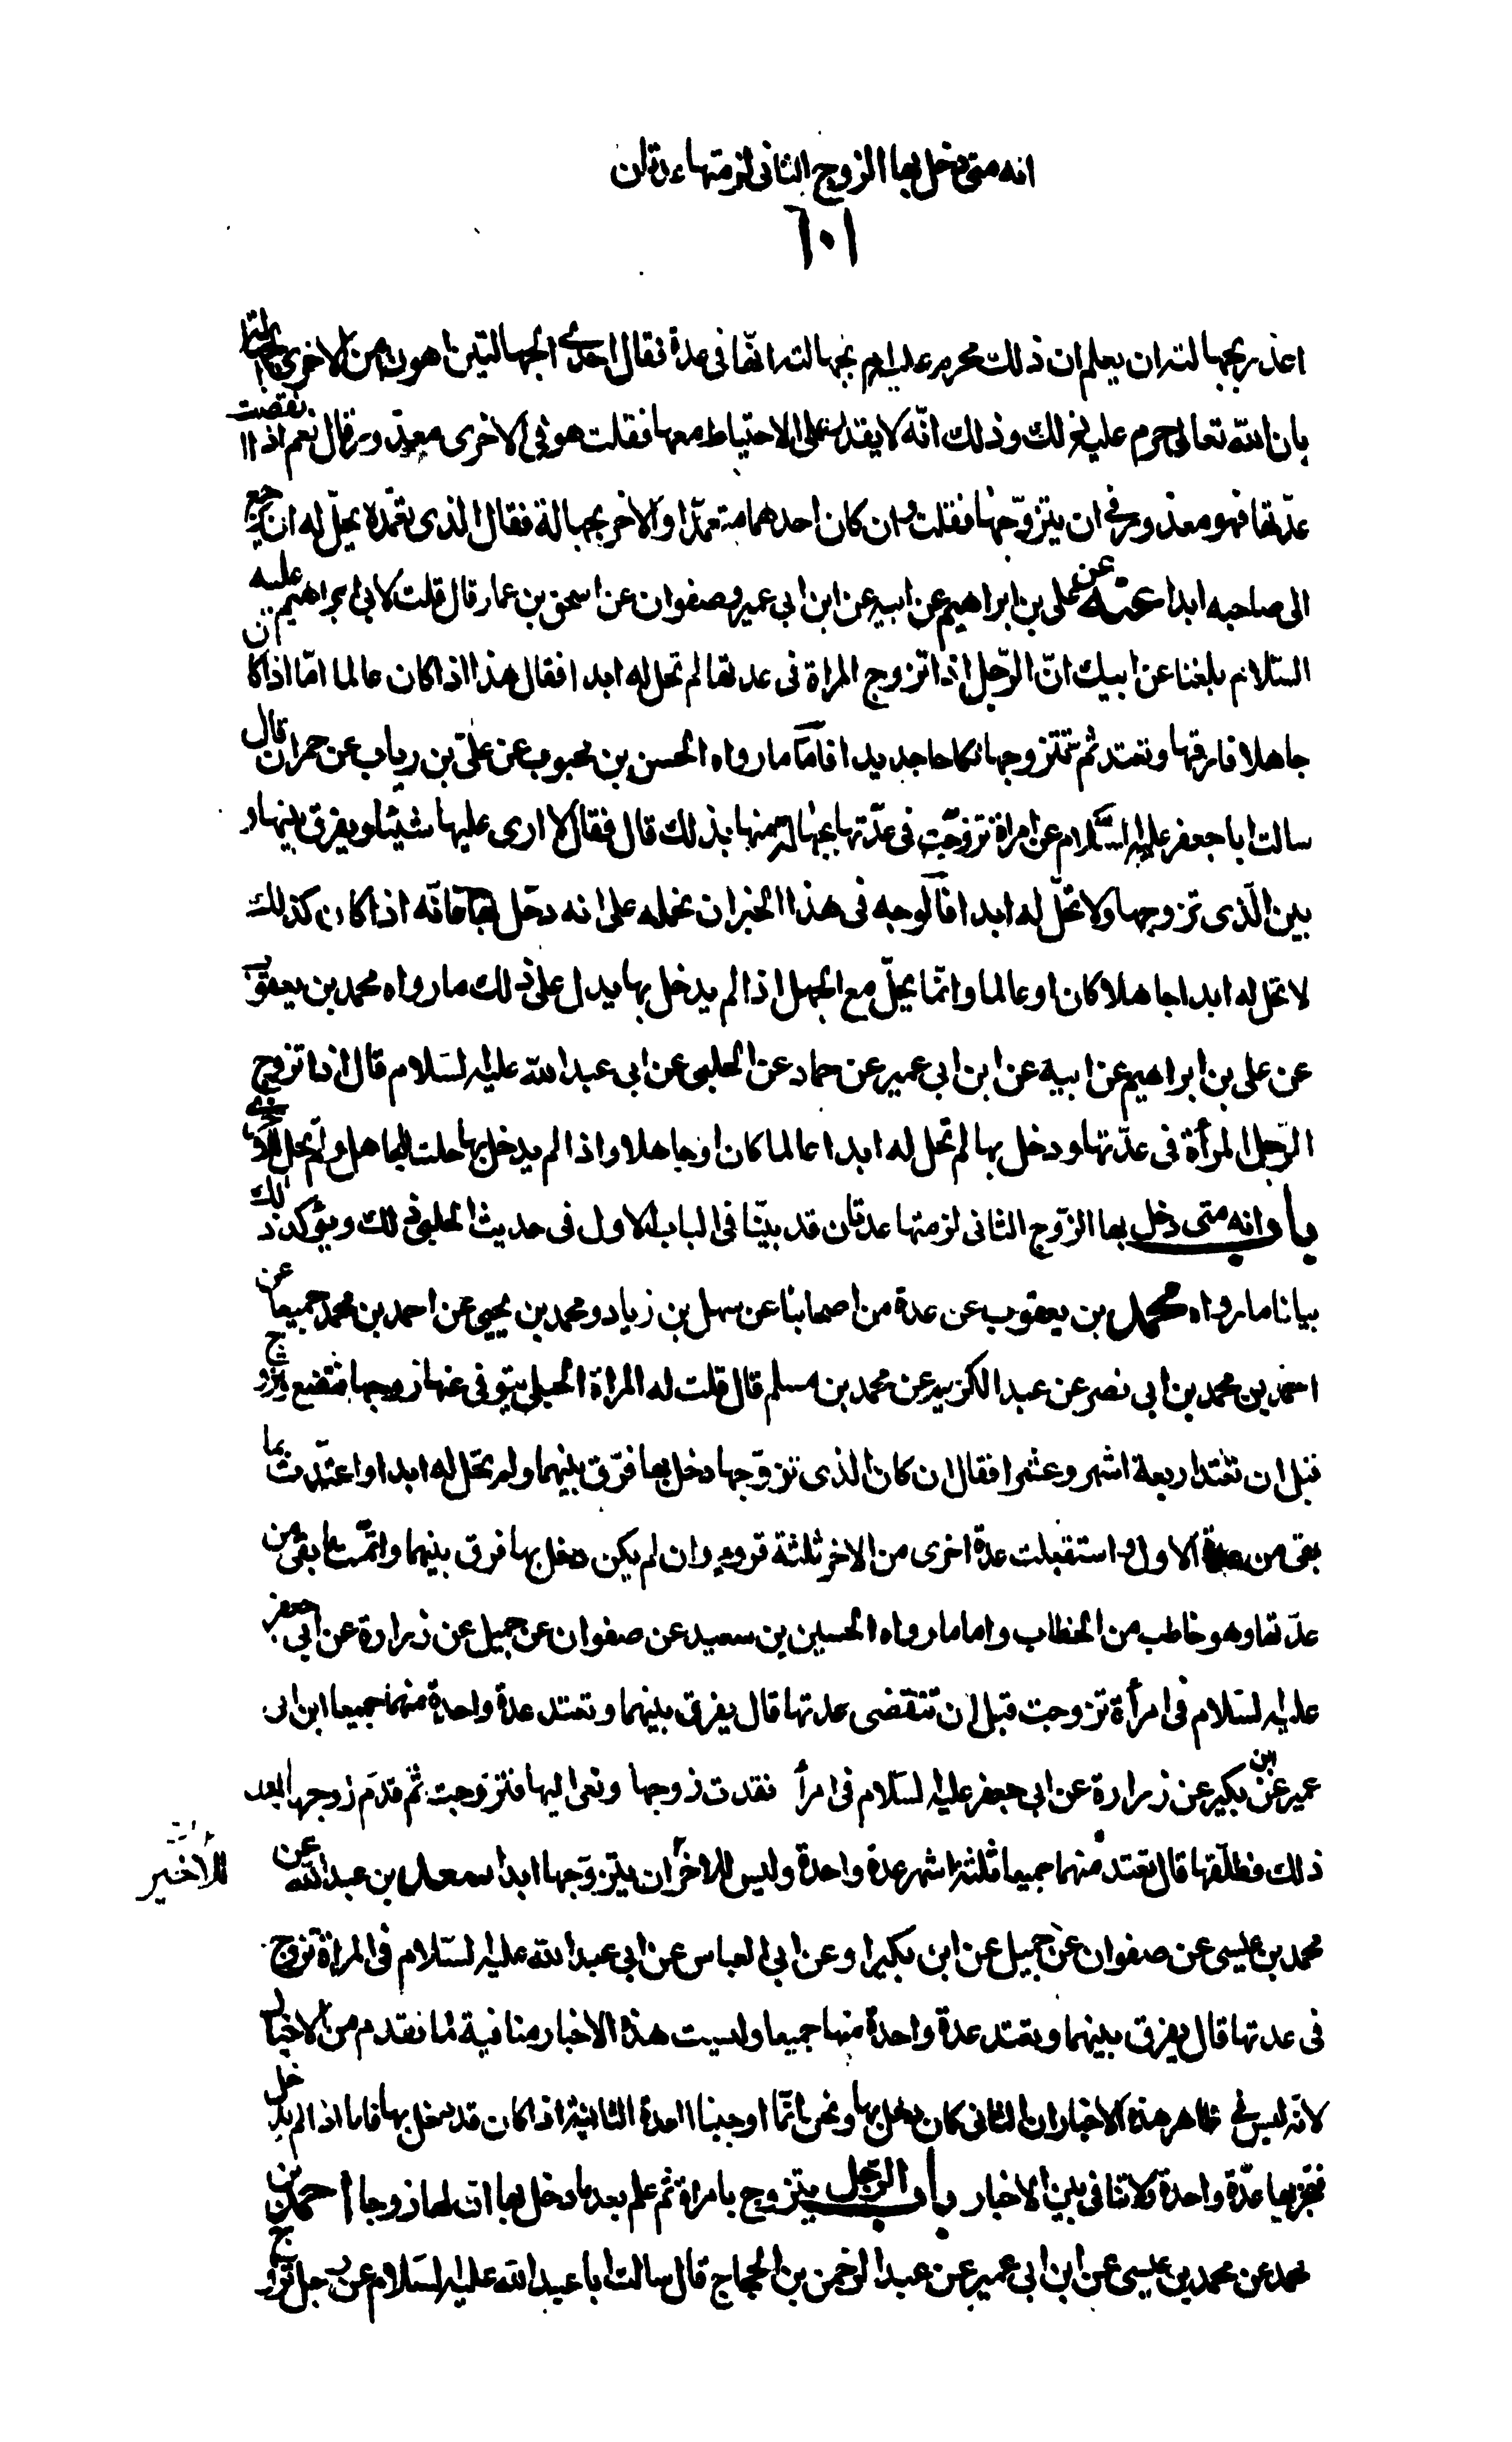 انه متى دخل بها الزوج الثانى لزمتها عدتان
٦٠١
اعذر بجهالته ان يعلم ان ذلك محرم عليه ام بجهالته انها فى عدة فقال احدى الجهالتين اهون من الاخرى الجهالة
بان الله تعالى حرم عليه ذلك وذلك انّه لا يقدر على الاحتياط معها فقلت هو فى الاخرى معذور قال نعم اذا انقضت
عدّتها فهو معذور فى ان يتزوّجها فقلت وان كان احدهما متعمدّا والاخر بجهالة فقال الذى تعمّد لا يحلّ له ان يرجع
الى صاحبه ابدا عنه عن على بن ابراهيم عن ابيه عن ابن ابى عمير وصفوان عن اسحق بن عمار قال قلت لابى ابراهيم عليه
السّلام بلغنا عن ابيك انّ الرّجل اذا تزوج المراة فى عدتها لم تحل له ابدا فقال هذا اذا كان عالما امّا اذا كان
جاهلا فارقها وتعتد ثم تتزوجها نكاحا جديدا فامّا ما رواه الحسن بن محبوب عن علىّ بن رياب عن حمران قال
سالت ابا جعفر عليه السّلام عن امراة تزوّجت فى عدّتها بجهالة منها بذلك قال فقال لا ارى عليها شيئا ويفرق بينها و
بين الّذى تزوجها ولا تحلّ له ابدا فالوجه فى هذا الخبر ان نحمله على انه دخل بها فانّه اذا كان كذلك
لا تحل له ابدا جاهلا كان او عالما وانّما يحلّ مع الجهل اذا لم يدخل بها يدل على ذلك ما رواه محمد بن يعقوب
عن على بن ابراهيم عن ابيه عن ابن ابى عمير عن حماد عن الحلبى عن ابى عبد الله عليه لسلام قال اذا تزوج
الرّجل المرأة فى عدّتها ودخل بها لم تحل له ابدا عالما كان او جاهلا واذا لم يدخل بها حلت للجاهل ولم تحل للاخر
باب انه متى دخل بها الزوّج الثانى لزمتها عدتان قد بيّنا فى الباب الاول فى حديث الحلبى ذلك ويؤكد ذلك
بيانا ما رواه محمد بن يعقوب عن عدة من اصحابنا عن سهل بن زياد ومحمد بن يحيى عن احمد بن محمد جميعا عن
احمد بن محمد بن ابى نصر عن عبد الكريم عن محمد بن مسلم قال قلت له المراة الحبلى يتوفى عنها زوجها فتضع وتزوج
قبل ان تعتد اربعة اشهر وعشرا فقال ان كان الذى تزوّجها دخل بها فرّق بينهما ولم تحل له ابدا واعتدّت بما
بقى من عدة الاول واستقبلت عدة اخرى من الاخر ثلثة قروء وان لم يكن دخل بها فرق بينهما واتمّت ما بقى من
عدّتها وهو خاطب من الخطاب واما ما رواه الحسين بن سعيد عن صفوان عن جميل عن زرارة عن ابى جعفر
عليه لسّلام فى امرأة تزوجت قبل ان تنقضى عدتها قال يفرق بينهما وتعتد عدة واحدة منهما جميعا ابن ابى
عمير عن ابن بكير عن زرارة عن ابى جعفر عليه لسّلام فى امرأ فقدت زوجها ونعى اليها فتزوجت ثم قدم زوجها بعد
ذلك فطلّقها قال تعتد منهما جميعا ثلثة اشهر عدة واحدة وليس للاخر ان يتزوّجها ابدا سعد بن عبد الله عن
للاخير
محمد بن عيسى عن صفوان عن جميل عن ابن بكير او عن ابى العباس عن ابى عبد الله عليه لسّلام فى المراة تزوج
فى عدتها قال يفرق بينهما وتعتد عدة واحدة منهما جميعا وليست هذه الاخبار منافية لما تقدم من الاخبار
لانّه ليس فى ظاهر هذه الاخبار ان الثانى كان دخل بها ونحن انّما اوجبنا العدة الثانية اذا كان قد دخل بها فاما اذا لم يدخل
فتجزيها عدّة واحدة ولا تنافى بين الاخبار باب الرّجل يتزوج بامراة ثم علم بعد ما دخل بها ان لها زوجا احمد بن
محمد عن محمد بن عيسى عن ابن ابى عمير عن عبد الرحمن بن الحجاج قال سالت ابا عبد الله عليه لسّلام عن رجل تزوج